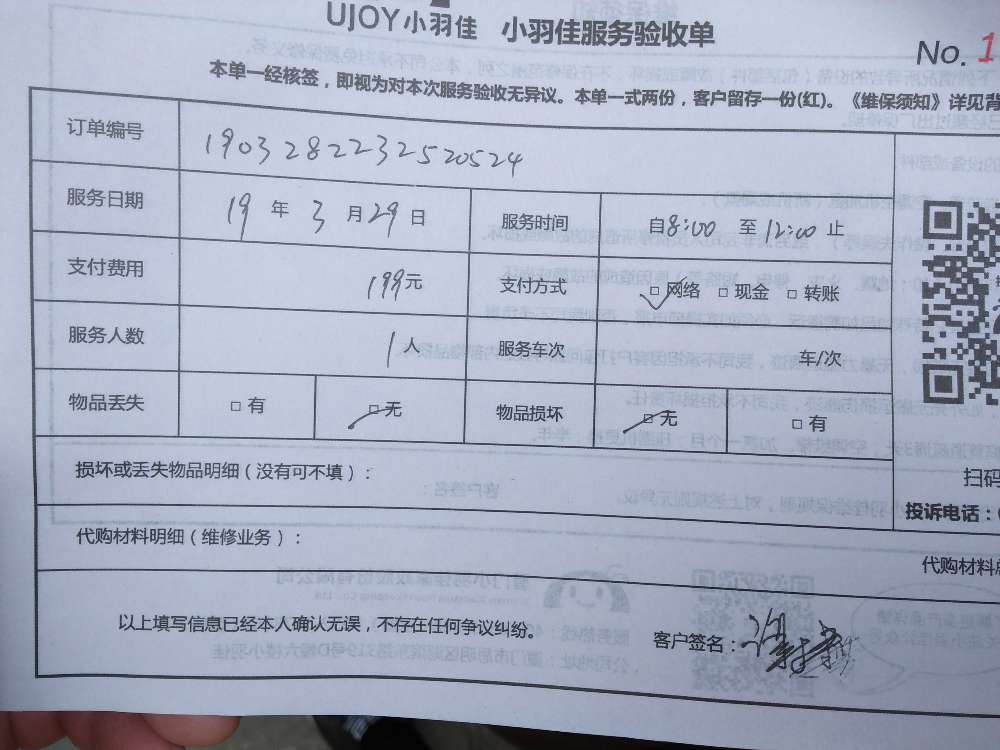 UJOY小羽佳 小羽佳服务验收单
No. 1
本单一经核签，即视为对本次服务验收无异议。本单一式两份，客户留存一份(红)。《维保须知》详见背
订单编号 1903282232520524
服务日期 19 年 3 月 29 日 服务时间 自8:00 至 12:00 止
支付费用 199元 支付方式 □网络 □现金 □转账
服务人数 1 人 服务车次 车/次
物品丢失 □有 □无 物品损坏 □无 □有
损坏或丢失物品明细（没有可不填）：
扫码
投诉电话：
代购材料明细（维修业务）：
代购材料
以上填写信息已经本人确认无误，不存在任何争议纠纷。
客户签名：